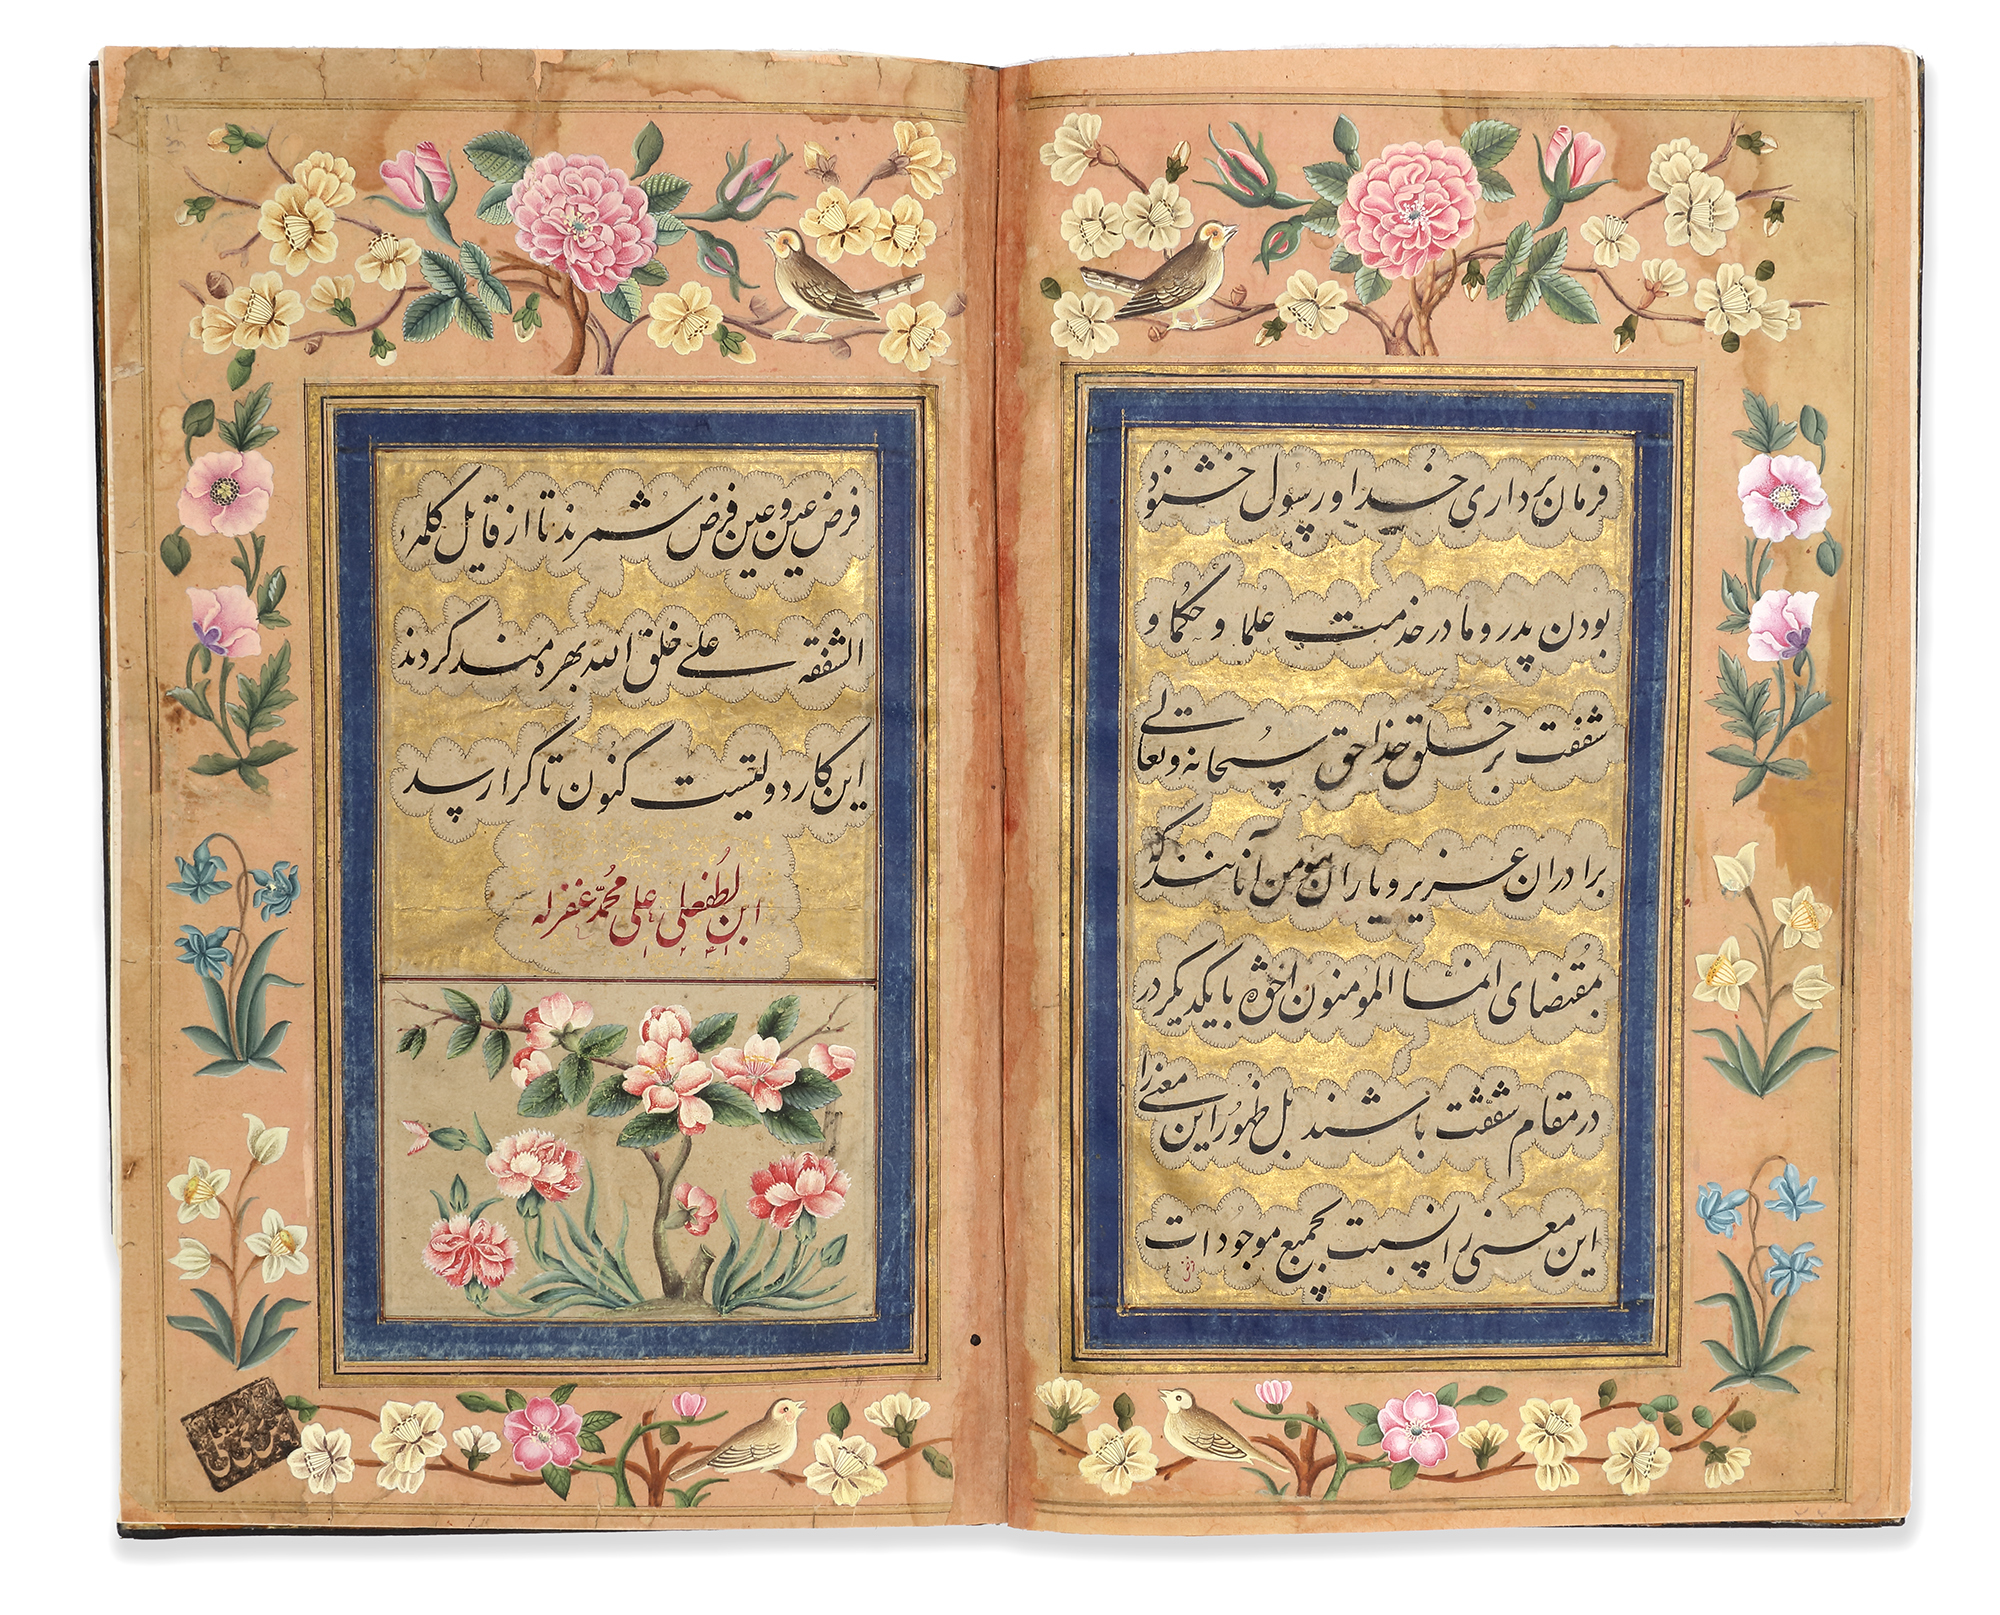 فرمان برداری خدا و رسول خشنود
بودن پدر و مادر خدمت علما و حکما و
شفقت بر خلق خدا حق سبحانه و تعالی
برادران عزیز و یاران مومن آنانند که
بمقتضای انما المومنون اخوة با یکدیگر در
در مقام شفقت باشند بل ظهور این معنی را
این معنی را نسبت بجمیع موجودات
فرض عین و عین فرض شمرند تا از قایل کلمهٔ
الشفقه علی خلق الله بهره مند گردند
این کار دولتیست کنون تا کرا رسد
ابن لطفعلی علی محمد غفر له